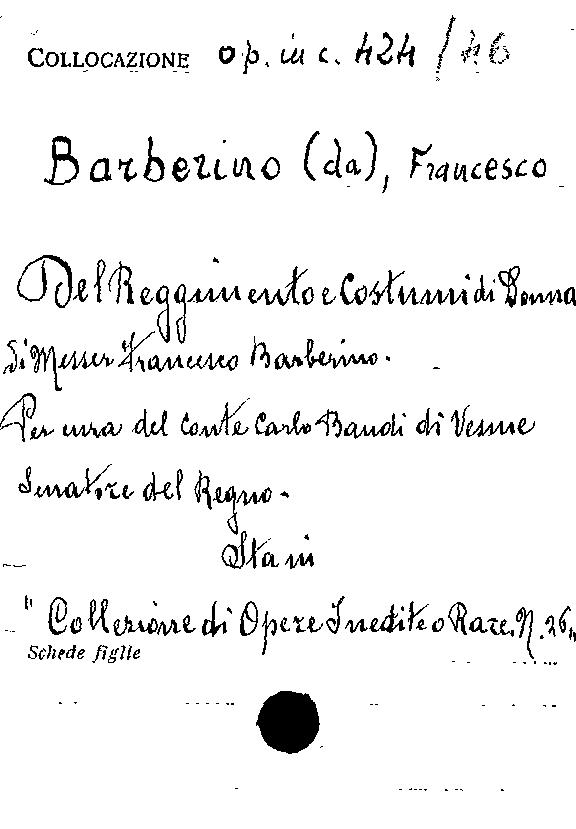 COLLOCAZIONE op. in c. 424/46
Barberino (da), Francesco
Del Reggimento e Costumi di Donna
di Messer Francesco Barberino.
Per cura del Conte Carlo Baudi di Vesme
Senatore del Regno.
Sta in
" Collezione di Opere Inedite o Rare. N. 26"
Schede figlie